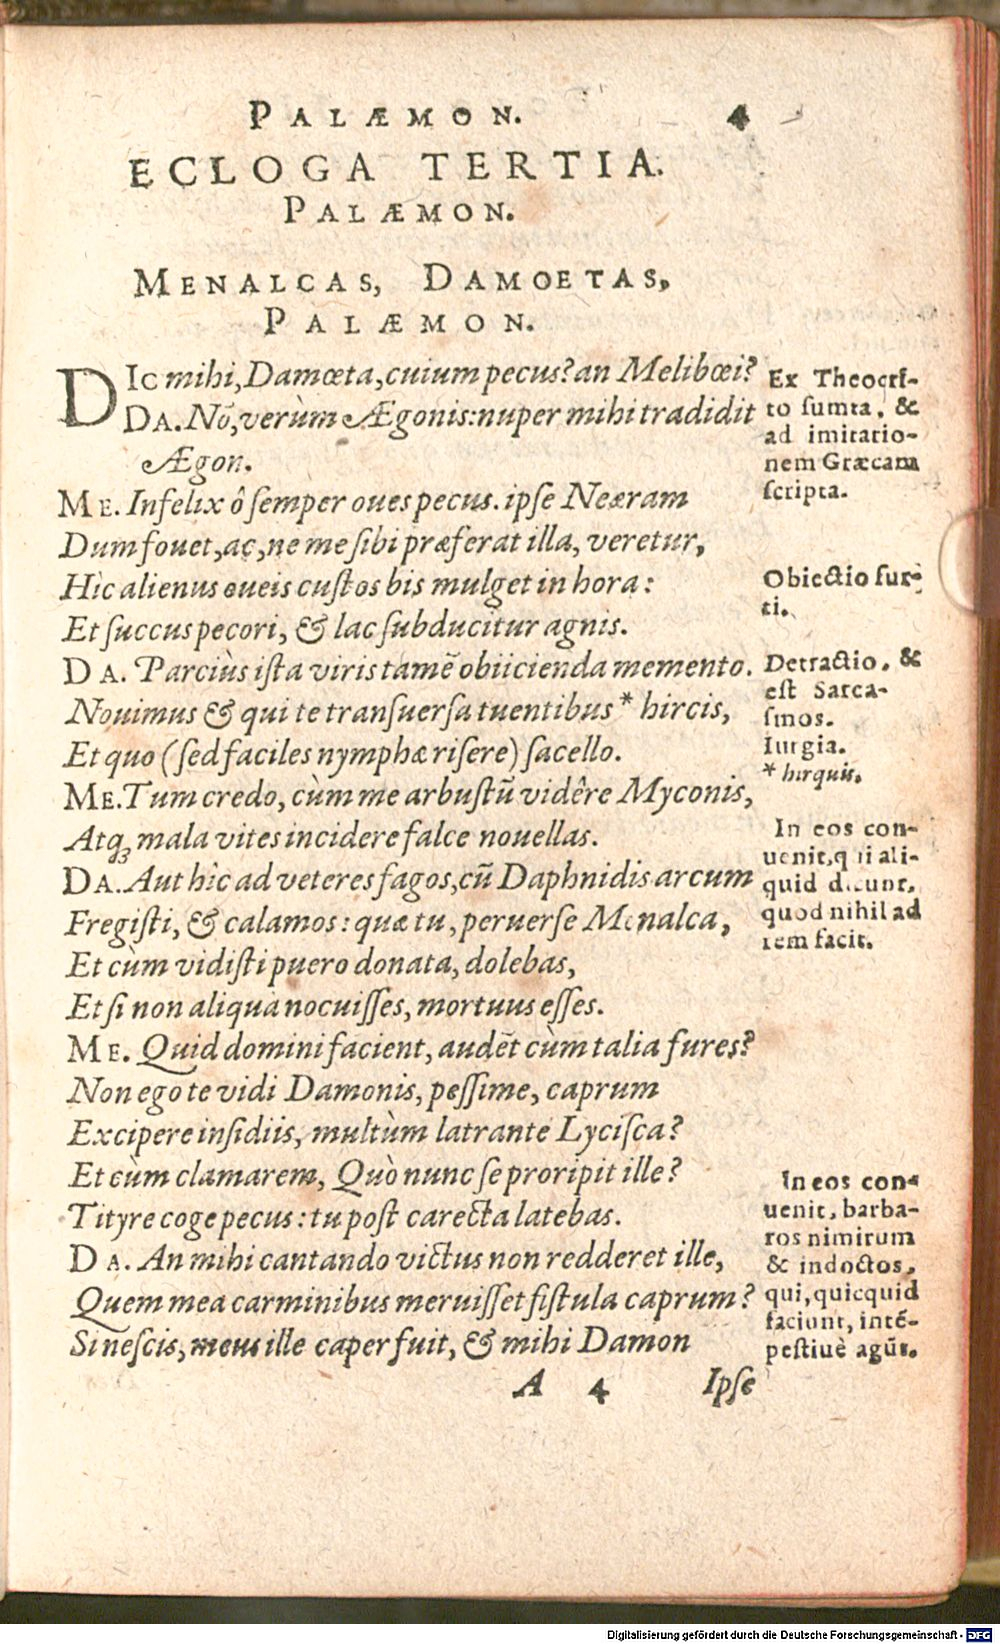 PALÆMON. 4
ECLOGA TERTIA.
PALÆMON.
MENALCAS, DAMOETAS,
PALÆMON.
DIC mihi, Damœta, cuium pecus? an Melibœi?
DA. Nō, verùm Ægonis: nuper mihi tradidit
Ægon.
ME. Infelix ô semper oues pecus. ipse Neæram
Dum fouet, ac, ne me sibi præferat illa, veretur,
Hìc alienus oueis custos bis mulget in hora:
Et succus pecori, & lac subducitur agnis.
DA. Parciùs ista viris tamē obiicienda memento.
Nouimus & qui te transuersa tuentibus * hircis,
Et quo (sed faciles nymphæ risere) sacello.
ME. Tum credo, cùm me arbustū vidêre Myconis,
Atq; mala vites incidere falce nouellas.
DA. Aut hìc ad veteres fagos, cū Daphnidis arcum
Fregisti, & calamos: quæ tu, peruerse Menalca,
Et cùm vidisti puero donata, dolebas,
Et si non aliquà nocuisses, mortuus esses.
ME. Quid domini facient, audēt cùm talia fures?
Non ego te vidi Damonis, pessime, caprum
Excipere insidiis, multùm latrante Lycisca?
Et cùm clamarem, Quò nunc se proripit ille?
Tityre coge pecus: tu post carecta latebas.
DA. An mihi cantando victus non redderet ille,
Quem mea carminibus meruisset fistula caprum?
Si nescis, meus ille caper fuit, & mihi Damon
A 4 Ipse
Ex Theocri-
to sumta, &
ad imitatio-
nem Græcam
scripta.
Obiectio fur-
ti.
Detractio, &
est Sarca-
smos.
Iurgia.
* hirquis.
In eos con-
uenit, qui ali-
quid dicunt,
quod nihil ad
rem facit.
In eos con-
uenit, barba-
ros nimirum
& indoctos,
qui, quicquid
faciunt, inté-
pestiuè agūt.
Digitalisierung gefördert durch die Deutsche Forschungsgemeinschaft - DFG